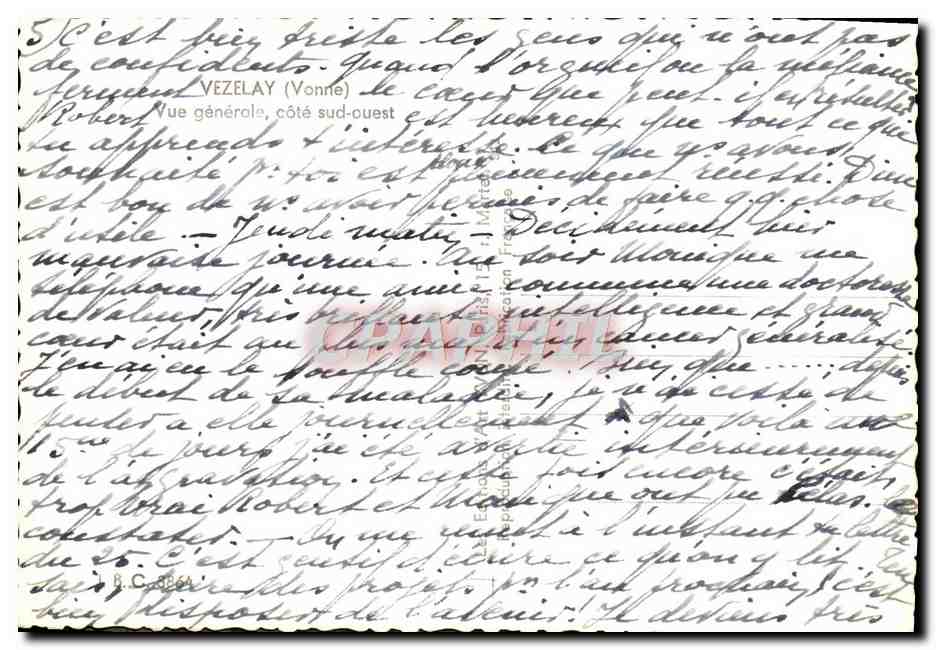 5) C'est bien triste les gens qui n'ont pas
de confidents. Quand l'orgueil ou la méfiance
ferment VEZELAY (Yonne) le cœur que peut-il en résulter
Robert Vue générale, côté sud-ouest est heureux que tout ce que
tu apprends t'intéresse. Ce que ns avons
souhaité pr toi est pleinement réussi. Dieu
est bon de ns avoir permis de faire q.q. chose
d'utile. — Jeudi matin — Décidément hier
mauvaise journée. Au soir Monique me
téléphone qu'une amie commune une doctoresse
de valeur, très brillante intelligence et grand
cœur était au cancer généralisé.
J'en ai eu le souffle coupé. que ..... depuis
le début de sa maladie, je n'ai cessé de
penser à elle journellement que voilà une
15ne de jours j'ai été avertie intérieurement
de l'aggravation. Et cette fois encore c'était
trop vrai Robert et Monique ont pu hélas le
constater. — On me remet à l'instant ta lettre
du 25. C'est gentil d'écrire ce qu'on y lit. Tu
sais, faire des projets pr l'an prochain, c'est
bien disposer de l'avenir! Je deviens très
B.C. 8864
CPAPHIL